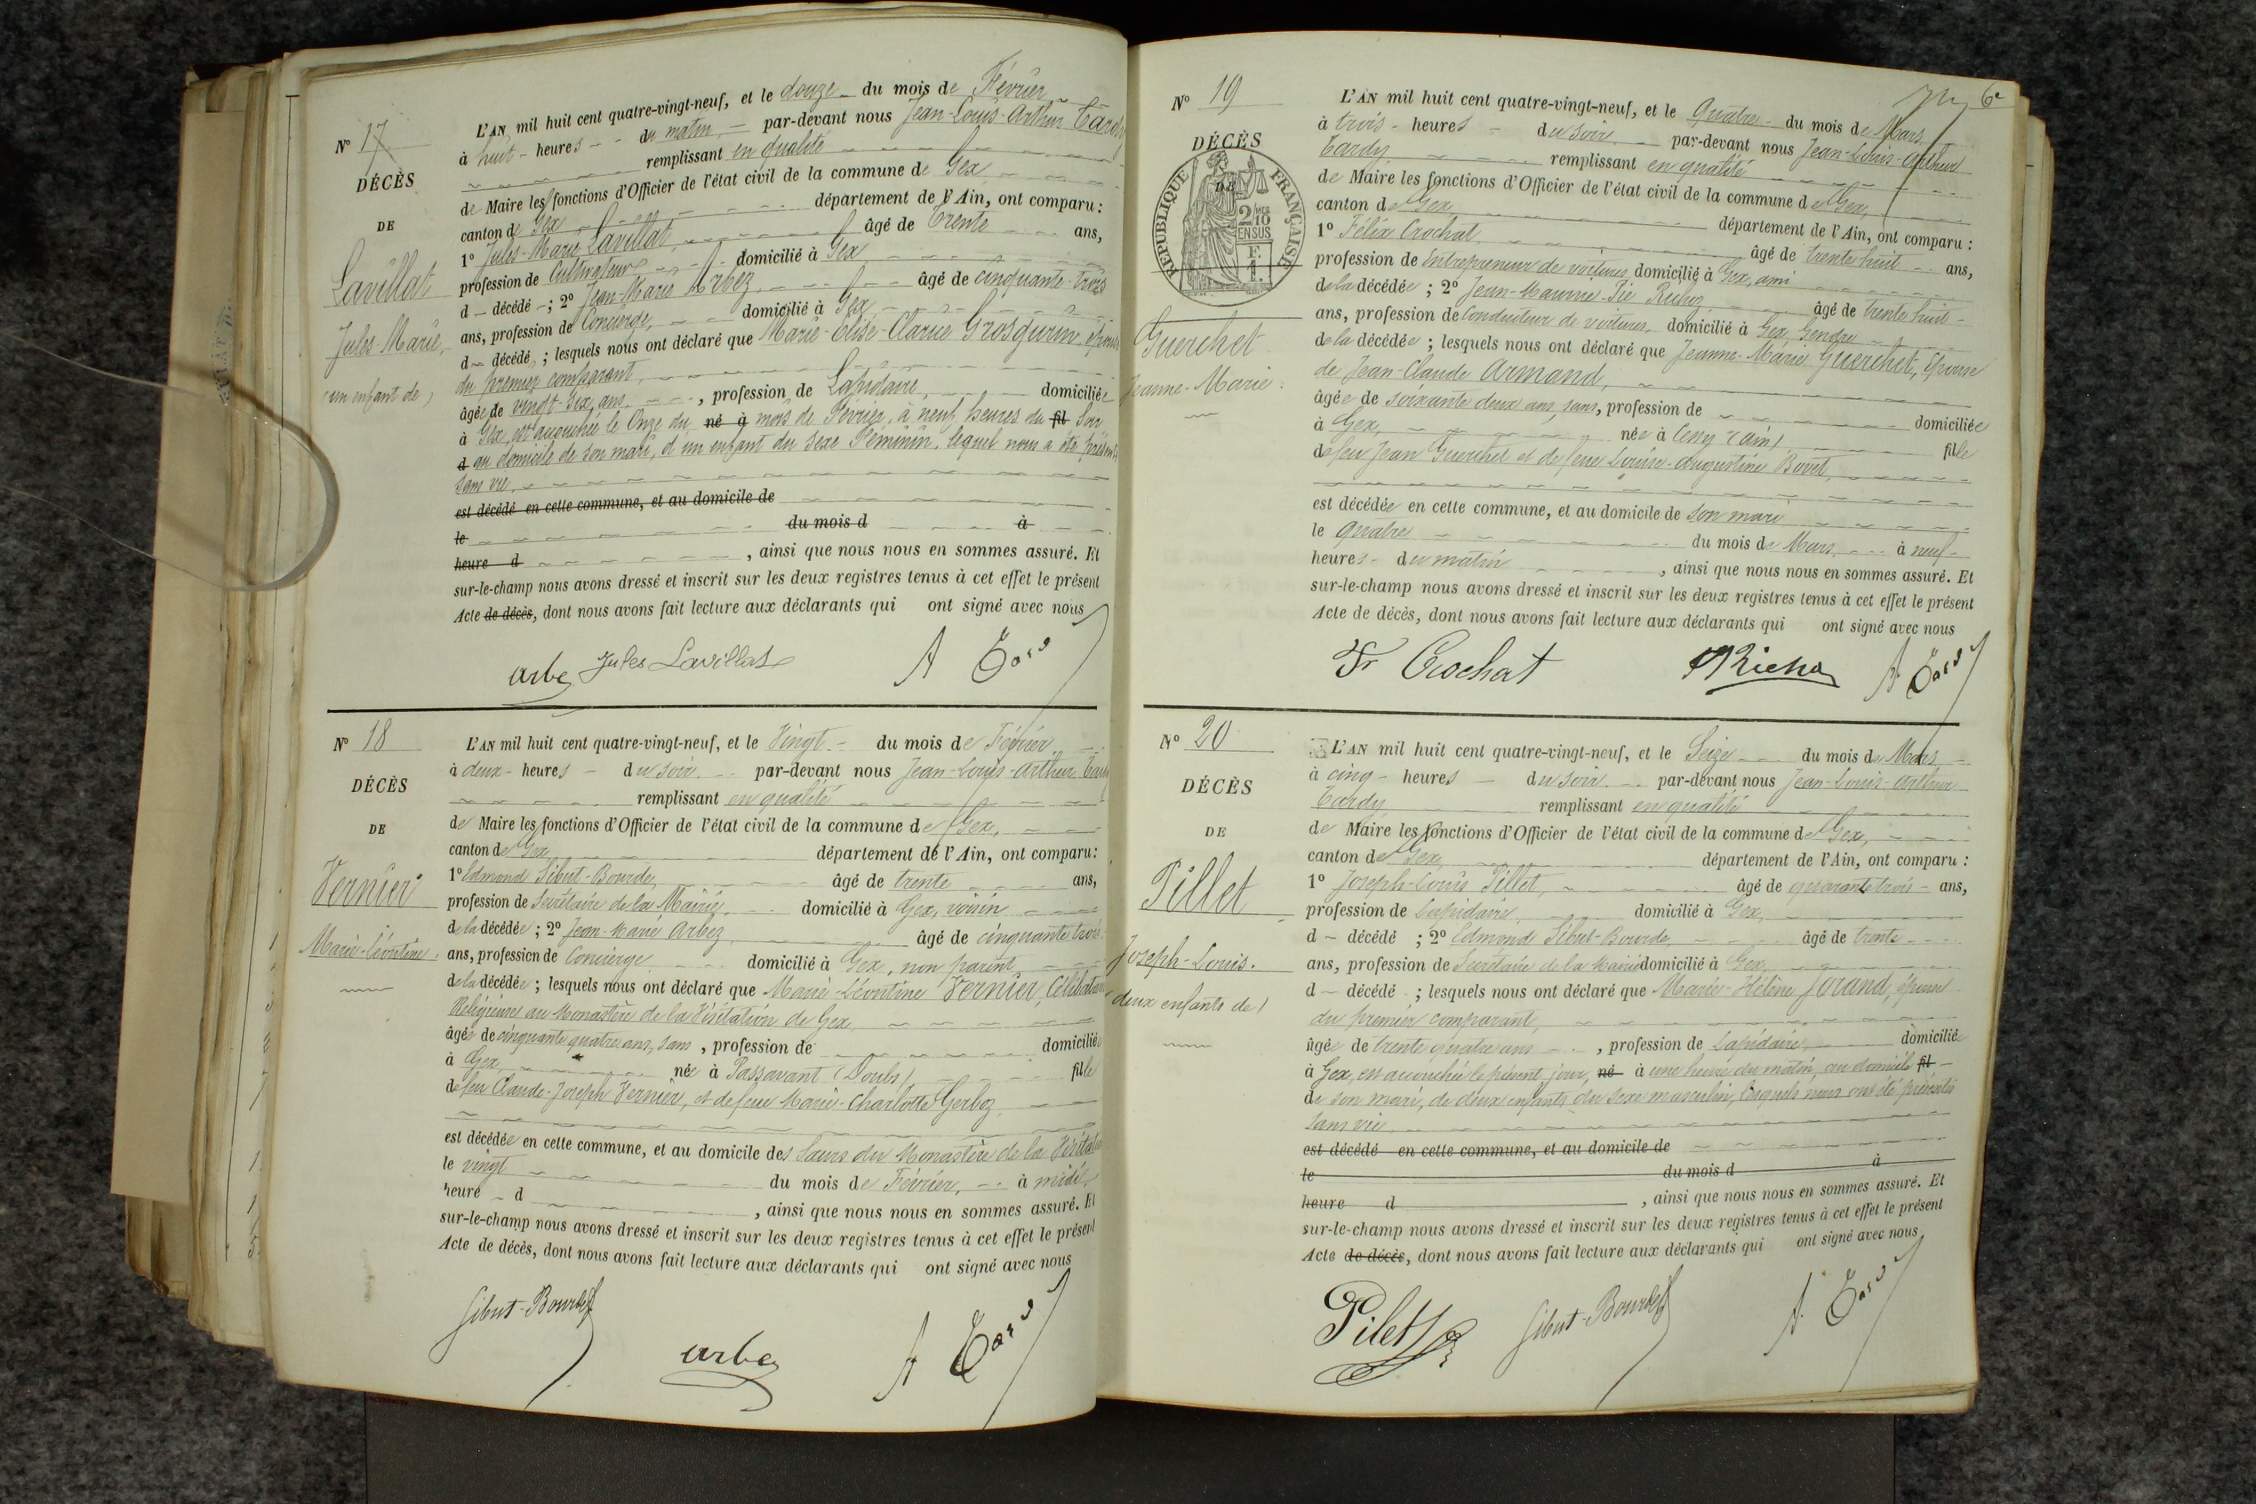 N° 17
DÉCÈS
DE
Lavillat
Jules-Marie,
(un enfant de)
L'AN mil huit cent quatre-vingt-neuf, et le douze du mois de Février
à huit heures du matin par-devant nous Jean-Louis-Arthur Tardy
remplissant en qualité
de Maire les fonctions d'Officier de l'état civil de la commune de Gex
canton de Gex département de l'Ain, ont comparu :
1° Jules-Marie Lavillat, âgé de Trente ans,
profession de Cultivateur domicilié à Gex
d décédé ; 2° Jean-Marie Arbez âgé de cinquante-trois
ans, profession de Concierge, domicilié à Gex
d décédé ; lesquels nous ont déclaré que Marie-Elisé-Clarice Grosgurin, épouse
du premier comparant,
âgée de vingt-six ans, profession de Lapidaire, domiciliée
à Gex, est accouchée le Onze du né à mois de Février, à neuf heures du fil Soir
d au domicile de son mari, d'un enfant du sexe Féminin, lequel nous a été présenté
sans vie
est décédé en cette commune, et au domicile de
le du mois d à
heure d , ainsi que nous nous en sommes assuré. Et
sur-le-champ nous avons dressé et inscrit sur les deux registres tenus à cet effet le présent
Acte de décès, dont nous avons fait lecture aux déclarants qui ont signé avec nous
Arbez Jules Lavillat A Tardy
N° 18
DÉCÈS
DE
Vernier
Marie-Léontine.
L'AN mil huit cent quatre-vingt-neuf, et le Vingt du mois de Février
à deux heures du soir par-devant nous Jean-Louis-Arthur Tardy
remplissant en qualité
de Maire les fonctions d'Officier de l'état civil de la commune de Gex,
canton de Gex département de l'Ain, ont comparu :
1° Edmond Sibut-Bourde, âgé de trente ans,
profession de Secrétaire de la Mairie, domicilié à Gex, voisin
de la décédée ; 2° Jean-Marie Arbez âgé de cinquante trois
ans, profession de Concierge domicilié à Gex, non parent
de la décédée ; lesquels nous ont déclaré que Marie-Léontine Vernier, Célibataire
Religieuse au Monastère de la Visitation de Gex
âgée de cinquante quatre ans, sans, profession de domiciliée
à Gex, née à Passavant (Doubs) fille
de feu Claude-Joseph Vernier, et de feue Marie-Charlotte Gerboz
est décédée en cette commune, et au domicile des Sœurs du Monastère de la Visitation
le vingt du mois de Février, à midi,
heure d , ainsi que nous nous en sommes assuré. Et
sur-le-champ nous avons dressé et inscrit sur les deux registres tenus à cet effet le présent
Acte de décès, dont nous avons fait lecture aux déclarants qui ont signé avec nous
Sibut-Bourde Arbez A Tardy
6e
N° 19
DÉCÈS
DE
RÉPUBLIQUE FRANÇAISE
2/10 EN SUS
Guerchet
Jeanne-Marie.
L'AN mil huit cent quatre-vingt-neuf, et le Quatre du mois de Mars,
à trois heures du soir par-devant nous Jean-Louis-Arthur
Tardy remplissant en qualité
de Maire les fonctions d'Officier de l'état civil de la commune de Gex,
canton de Gex département de l'Ain, ont comparu :
1° Félix Crochat âgé de trente huit ans,
profession de Entrepreneur de voitures, domicilié à Gex, ami
de la décédée ; 2° Jean-Maurice-Pie Richoz âgé de trente huit
ans, profession de Conducteur de voitures domicilié à Gex, Gendre
de la décédée ; lesquels nous ont déclaré que Jeanne-Marie Guerchet, Epouse
de Jean-Claude Armand,
âgée de soixante deux ans, sans, profession de domiciliée
à Gex, née à Cessy (ain) fille
de feu Jean Guerchet et de feue Louise-Augustine Bovet,
est décédée en cette commune, et au domicile de son mari
le quatre du mois de Mars à neuf
heures du matin , ainsi que nous nous en sommes assuré. Et
sur-le-champ nous avons dressé et inscrit sur les deux registres tenus à cet effet le présent
Acte de décès, dont nous avons fait lecture aux déclarants qui ont signé avec nous
Fx Crochat Richoz A Tardy
N° 20
DÉCÈS
DE
Pillet
Joseph-Louis.
(deux enfants de)
L'AN mil huit cent quatre-vingt-neuf, et le Seize du mois de Mars
à cinq heures du soir par-devant nous Jean-Louis-Arthur
Tardy remplissant en qualité
de Maire les fonctions d'Officier de l'état civil de la commune de Gex,
canton de Gex département de l'Ain, ont comparu :
1° Joseph-Louis Pillet, âgé de quarante trois ans,
profession de Lapidaire, domicilié à Gex,
d décédé ; 2° Edmond Sibut-Bourde, âgé de trente
ans, profession de Secrétaire de la Mairie domicilié à Gex
d décédé ; lesquels nous ont déclaré que Marie-Hélène Jorand, épouse
du premier comparant,
âgée de trente quatre ans, profession de Lapidaire, domiciliée
à Gex, est accouchée le présent jour, né à une heure du matin, au domicile fil
de son mari, de deux enfants du sexe masculin, lesquels nous ont été présentés
sans vie
est décédé en cette commune, et au domicile de
le du mois d à
heure d , ainsi que nous nous en sommes assuré. Et
sur-le-champ nous avons dressé et inscrit sur les deux registres tenus à cet effet le présent
Acte de décès, dont nous avons fait lecture aux déclarants qui ont signé avec nous
Pilet Sibut-Bourde A. Tardy